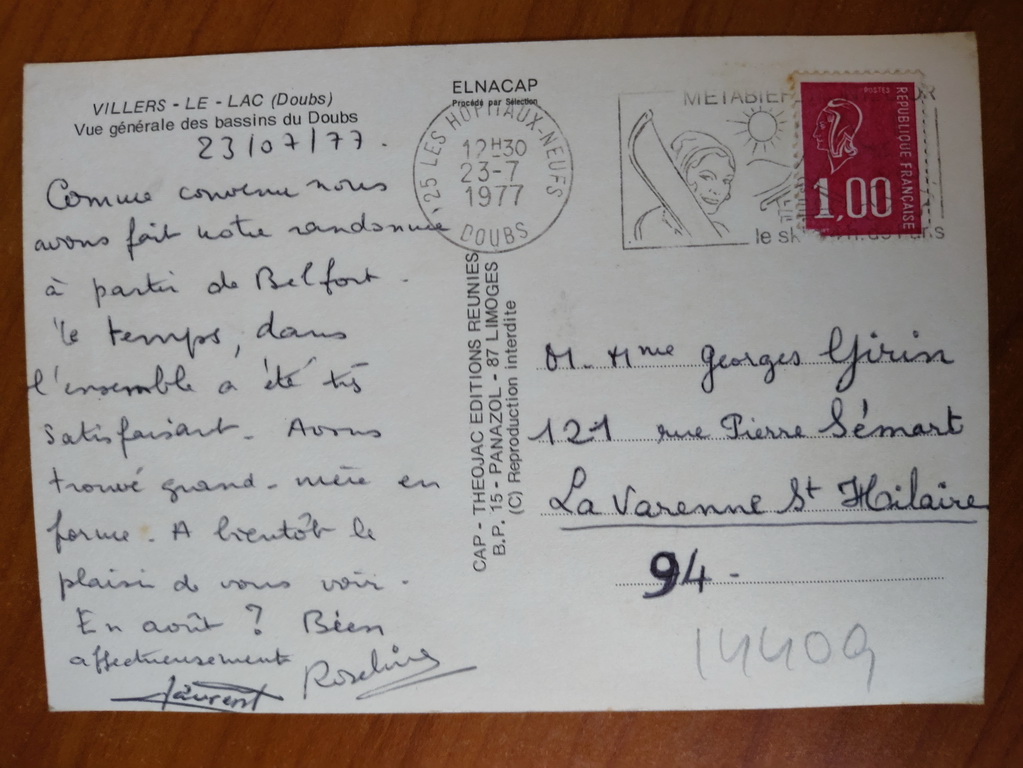 VILLERS - LE - LAC (Doubs)
Vue générale des bassins du Doubs
23/07/77.
Comme convenu nous
avons fait notre randonnée
à partir de Belfort.
le temps, dans
l'ensemble a été très
satisfaisant. Avons
trouvé grand-mère en
forme. A bientôt le
plaisir de vous voir.
En août ? Bien
affectueusement
Laurent Roseline
ELNACAP
Procédé par Sélection
25 LES HOPITAUX-NEUFS
12H30
23-7
1977
DOUBS
METABIEF
le sk
POSTES
REPUBLIQUE FRANÇAISE
1,00
CAP - THEOJAC EDITIONS REUNIES
B.P. 15 - PANAZOL - 87 LIMOGES
(C) Reproduction interdite
M. Mme Georges Girin
121 rue Pierre Sémart
La Varenne St Hilaire
94 -
14409